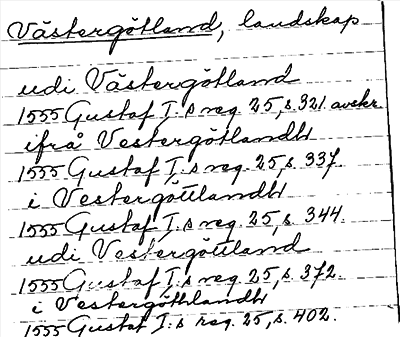 Västergötland, landskap
udi Västergötland
1555 Gustaf I:s reg. 25, s. 321. avskr.
ifrå Vestergötlandh
1555 Gustaf I:s reg. 25, s. 337.
i Vestergöttlandh
1555 Gustaf I:s reg. 25, s. 344.
udi Vestergöttland
1555 Gustaf I:s reg. 25, s. 372.
i Vestergöthlandh
1555 Gustaf I:s reg. 25, s. 402.